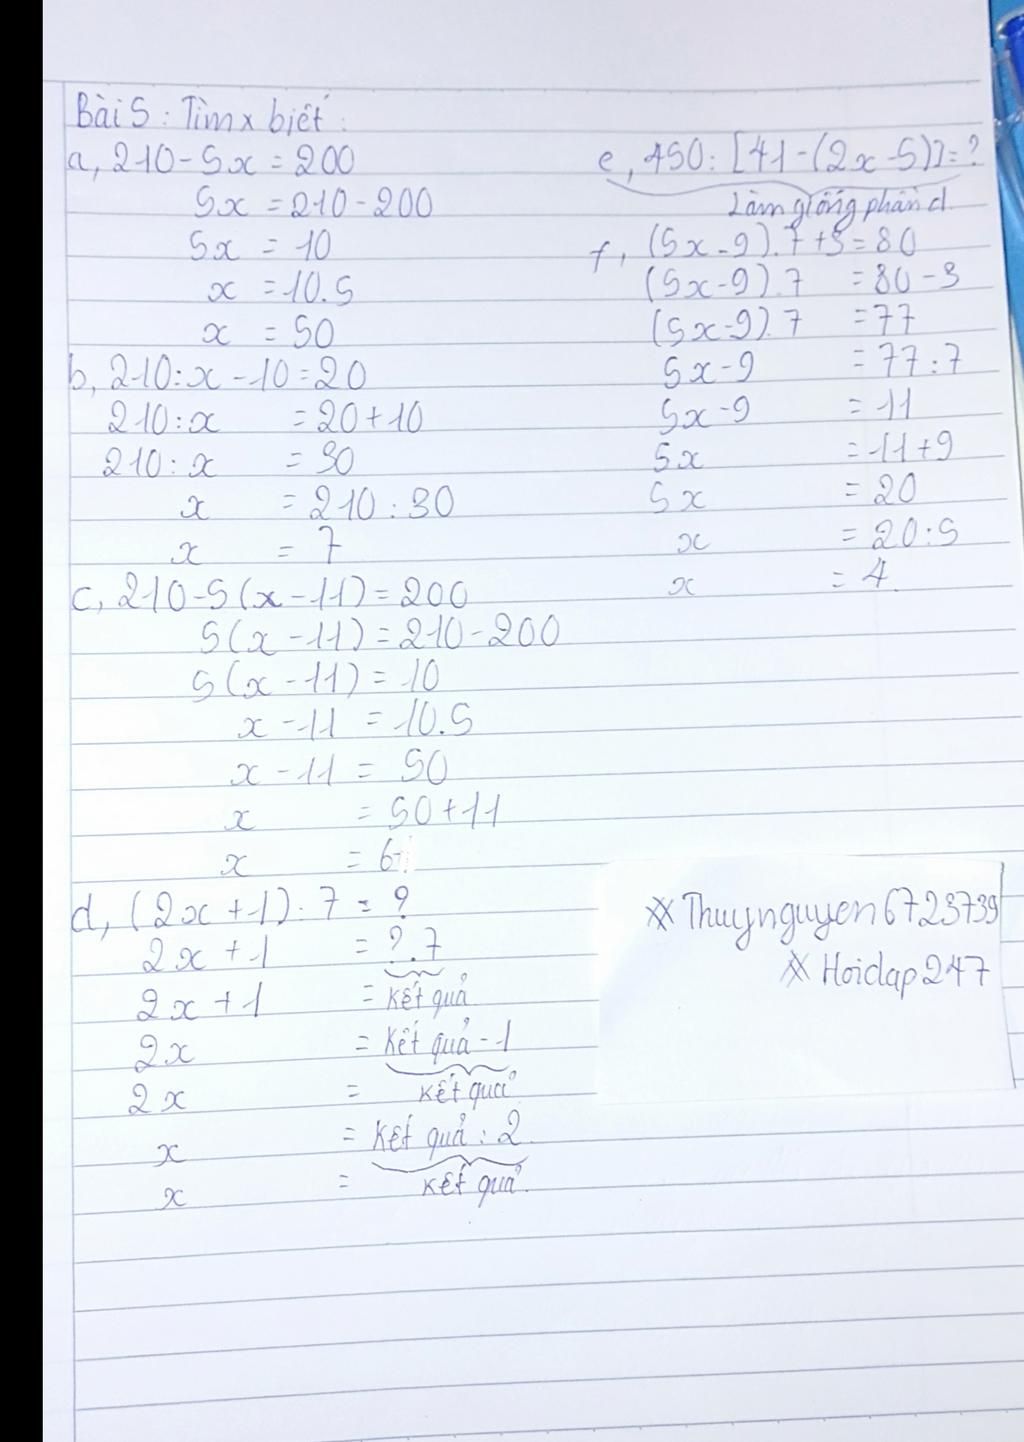 Bài 5: Tìm x biết:
a, 210-5x=200
5x=210-200
5x = 10
x =10.5
x = 50
b, 210:x-10=20
210:x =20+10
210:x = 30
x = 210:30
x = 7
c, 210-5(x-11)=200
5(x-11)=210-200
5(x-11)=10
x-11 =10.5
x-11 = 50
x = 50+11
x = 6
d, (2x+1):7 = ?
2x+1 = ?.7
2x+1 = Kết quả
2x = Kết quả-1
2x = Kết quả
x = Kết quả:2
x = Kết quả
e, 450:[41-(2x-5)]=?
Làm giống phần d
f, (5x-9).7+3=80
(5x-9).7 =80-3
(5x-9).7 =77
5x-9 =77:7
5x-9 =11
5x =11+9
5x =20
x =20:5
x =4
※Thuynguyen6723739
※Hoidap247